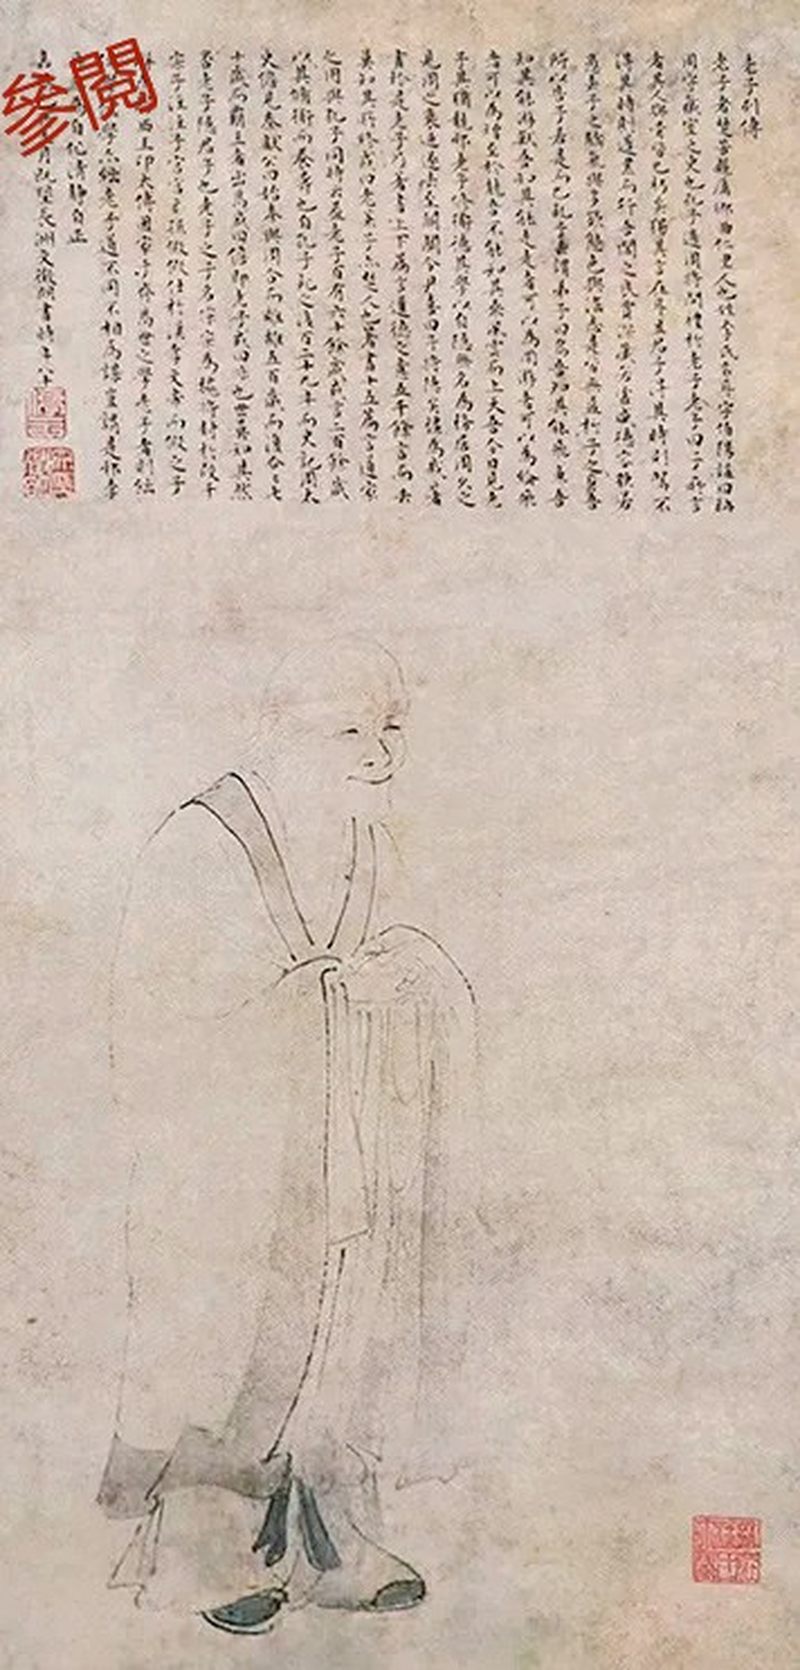 老子列傳
老子者楚苦縣厲鄉曲仁里人也姓李氏名耳字伯陽諡曰聃
周守藏室之史也孔子適周將問禮於老子老子曰子所言
者其人與骨皆已朽矣獨其言在耳且君子得其時則駕不
得其時則蓬累而行吾聞之良賈深藏若虛盛德容貌若
愚去子之驕氣與多欲態色與淫志是皆無益於子之身吾
所以告子若是而已孔子去謂弟子曰鳥吾知其能飛魚吾
知其能游獸吾知其能走走者可以為罔游者可以為綸飛
者可以為矰至於龍吾不能知其乘風雲而上天吾今日見老
子其猶龍邪老子修道德其學以自隱無名為務居周久之
見周之衰迺遂去至關關令尹喜曰子將隱矣彊為我著
書於是老子乃著書上下篇言道德之意五千餘言而去
莫知其所終或曰老萊子亦楚人也著書十五篇言道家
之用與孔子同時云蓋老子百有六十餘歲或言二百餘歲
以其脩道而養壽也自孔子死之後百二十九年而史記周太
史儋見秦獻公曰始秦與周合而離離五百歲而復合合七
十歲而霸王者出焉或曰儋即老子或曰非也世莫知其然
否老子隱君子也老子之子名宗宗為魏將封於段干
宗子注注子宮宮玄孫假假仕於漢孝文帝而假之子
西王卬太傅因家于齊焉世之學老子者則絀
學亦絀老子道不同不相為謀豈謂是邪李
自化清靜自正
月既望長洲文徵明書時年八十
參閱